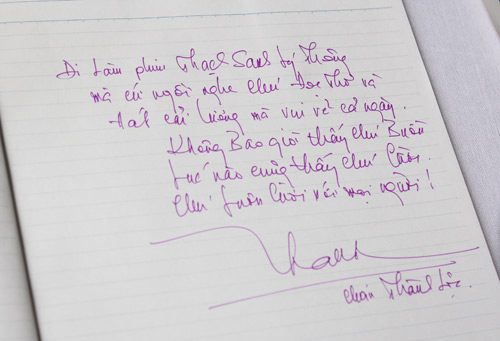 Đi làm phim Thạch Sanh Lý Thông
mà cứ ngồi nghe chú đọc thơ và
hát cải lương mà vui vẻ cả ngày.
Không bao giờ thấy chú buồn
Lúc nào cũng thấy chú cười.
Chú luôn cười với mọi người!
Thành Lộc.